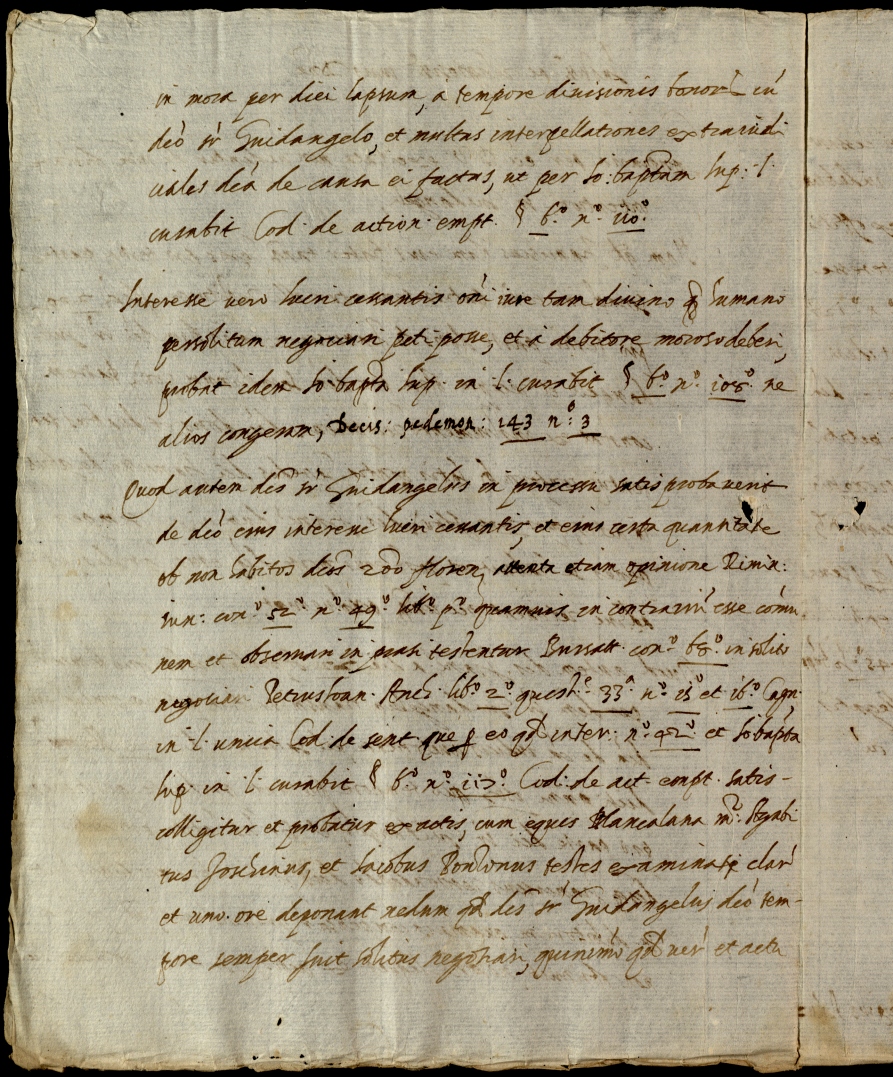 in mora per diei lapsum, à tempore divisionis bonor. cu'
dco' sr' Guidangelo, et multas interpellationes extraiudi
ciales dca' de causa ei factas, ut per Io: bap'tam lup: l.
curabit Cod. de action. empt. § 6.° n.° 110.°
Interesse vero lucri cessantis oni' iure tam divino q' humano
persolitum negociari peti posse, et à debitore moroso deberi,
probat idem Io: bap'ta lup. in l. curabit § 6.° n.° 108.° ne
alios congeram, Decis: pedemon: 143 n.° 3
Quod autem dcs' sr' Guidangelus in processu satis probaverit
de dco' eius interesse lucri cessantis, et eius certa quantitate
ob non habitos dcos' 200 floren, attenta etiam opinione Rimin:
iun: con.° 52.° n.° 49.° lib.° p.° quamvis in contrariu' esse comu'
nem et observari in praxi testentur Bursatt. con.° 68.° in solito
negociari Petrus Ioan. Anch. lib.° 2.° quest.e 33.a n.° 15.° et 16.° Cagn.
in l. unica Cod. de sent. que p eo qd' inter: n.° 92.° et Io: bap'ta
lup. in l. curabit § 6.° n.° 117.° Cod: de act. empt. satis-
colligitur et probatur ex actis, cum eques Blancalana m.r Agabi
tus Joschinus, et Iacobus testes examinati clar'
et uno. ore deponant nedum qd' dcs' sr' Guidangelus dco' tem-
pore semper fuit solitus negotiari, quinimo' qd' ver' et actu